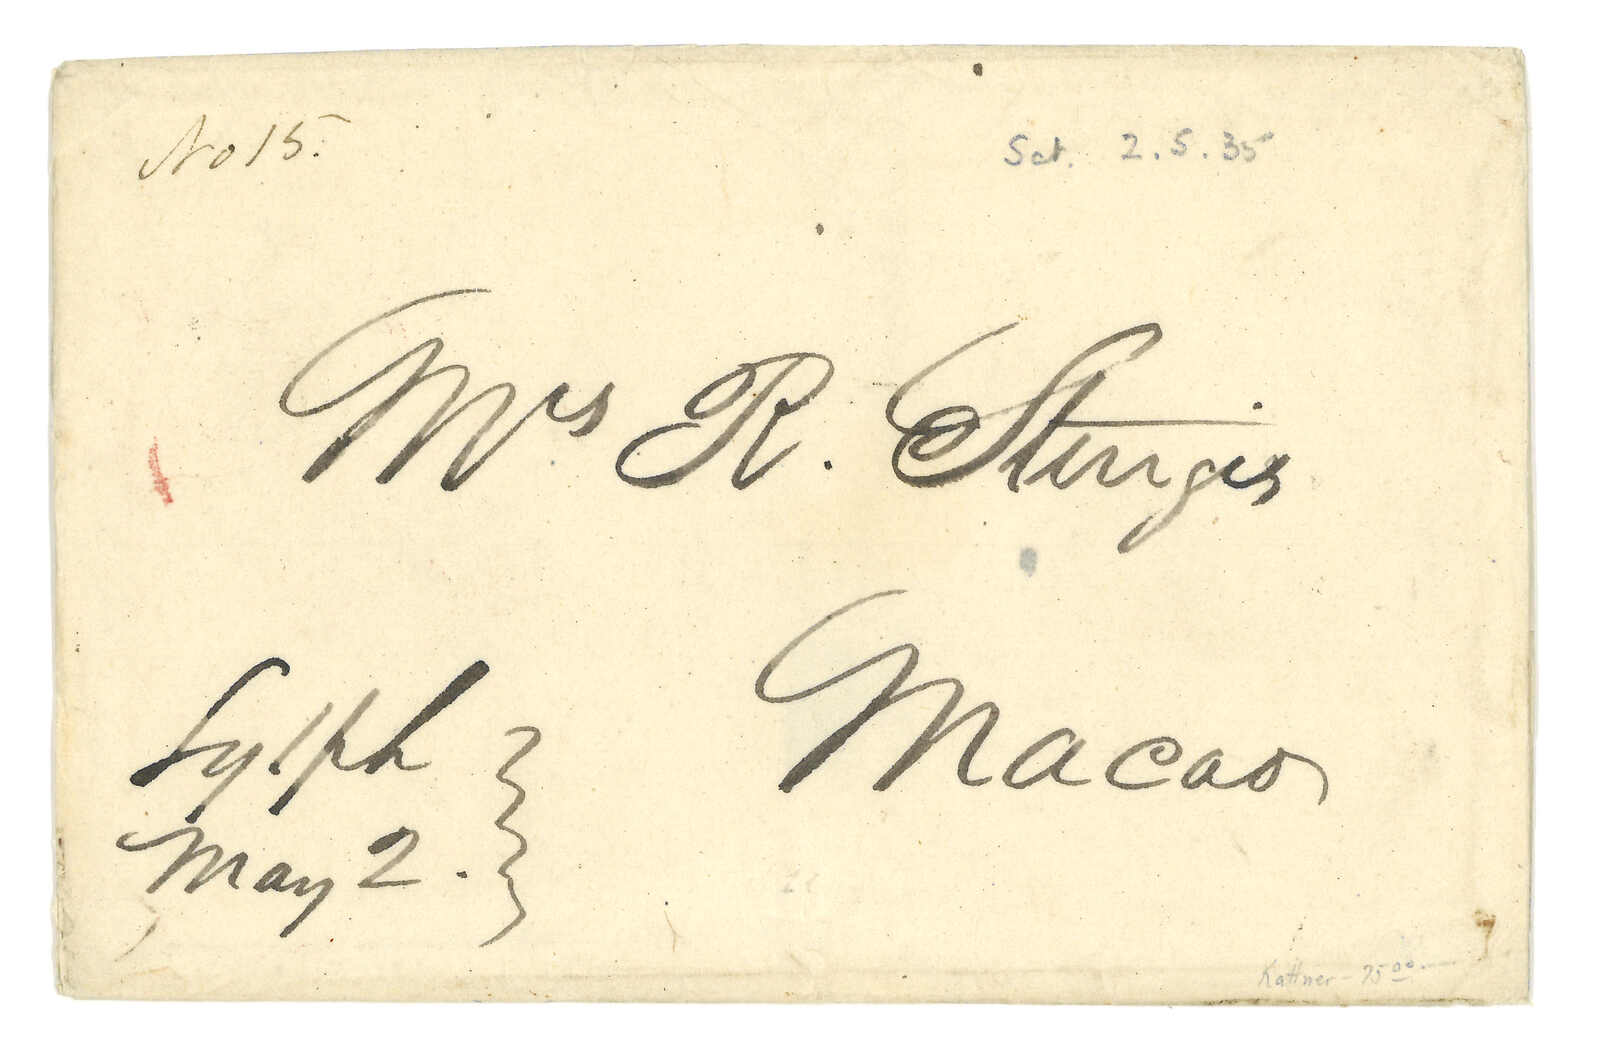 No 15.
Sat. 2.5.35
Mrs R. Sturgis
Macao
Sylph
May 2.
Kattner - 75 00